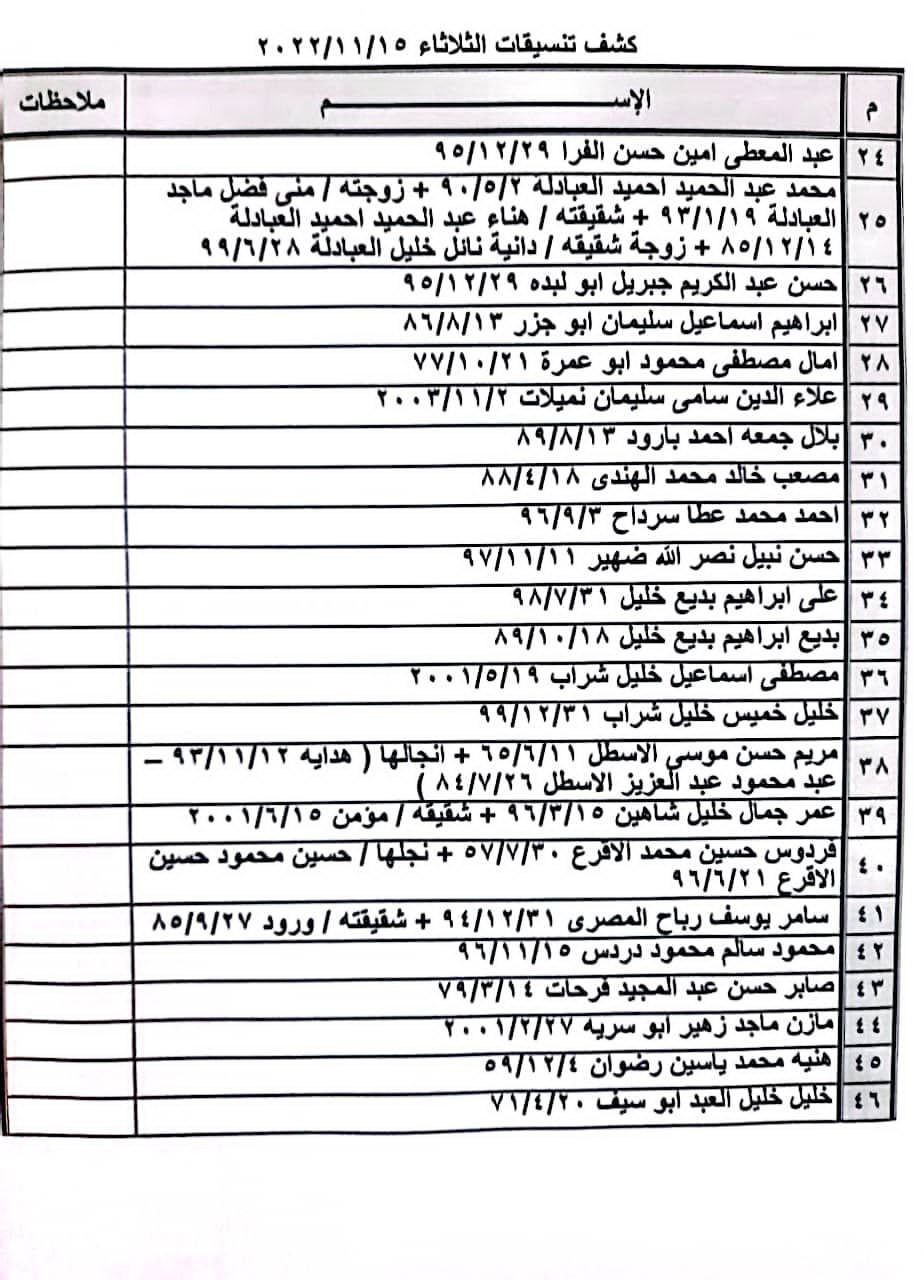 كشف تنسيقات الثلاثاء ٢٠٢٢/١١/١٥
م الإســـــــــم ملاحظات
٢٤ عبد المعطى امين حسن الفرا ٩٥/١٢/٢٩
محمد عبد الحميد احميد العبادلة ٩٠/٥/٢ + زوجته / منى فضل ماجد
٢٥ العبادلة ٩٣/١/١٩ + شقيقته / هناء عبد الحميد احميد العبادلة
٨٥/١٢/١٤ + زوجة شقيقه / دانية نائل خليل العبادلة ٩٩/٦/٢٨
٢٦ حسن عبد الكريم جبريل ابو لبده ٩٥/١٢/٢٩
٢٧ ابراهيم اسماعيل سليمان ابو جزر ٨٦/٨/١٣
٢٨ امال مصطفى محمود ابو عمرة ٧٧/١٠/٢١
٢٩ علاء الدين سامى سليمان نميلات ٢٠٠٣/١١/٢
٣٠ بلال جمعه احمد بارود ٨٩/٨/١٣
٣١ مصعب خالد محمد الهندى ٨٨/٤/١٨
٣٢ احمد محمد عطا سرداح ٩٦/٩/٣
٣٣ حسن نبيل نصر الله ضهير ٩٧/١١/١١
٣٤ على ابراهيم بديع خليل ٩٨/٧/٣١
٣٥ بديع ابراهيم بديع خليل ٨٩/١٠/١٨
٣٦ مصطفى اسماعيل خليل شراب ٢٠٠١/٥/١٩
٣٧ خليل خميس خليل شراب ٩٩/١٢/٣١
٣٨ مريم حسن موسى الاسطل ٦٥/٦/١١ + انجالها ( هدايه ٩٣/١١/١٢ –
عبد محمود عبد العزيز الاسطل ٨٤/٧/٢٦ )
٣٩ عمر جمال خليل شاهين ٩٦/٣/١٥ + شقيقه / مؤمن ٢٠٠١/٦/١٥
٤٠ فردوس حسين محمد الاقرع ٥٧/٧/٣٠ + نجلها / حسين محمود حسين
الاقرع ٩٦/٦/٢١
٤١ سامر يوسف رباح المصرى ٩٤/١٢/٣١ + شقيقته / ورود ٨٥/٩/٢٧
٤٢ محمود سالم محمود دردس ٩٦/١١/١٥
٤٣ صابر حسن عبد المجيد فرحات ٧٩/٣/١٤
٤٤ مازن ماجد زهير ابو سريه ٢٠٠١/٢/٢٧
٤٥ هنيه محمد ياسين رضوان ٥٩/١٢/٤
٤٦ خليل خليل العبد ابو سيف ٧١/٤/٢٠